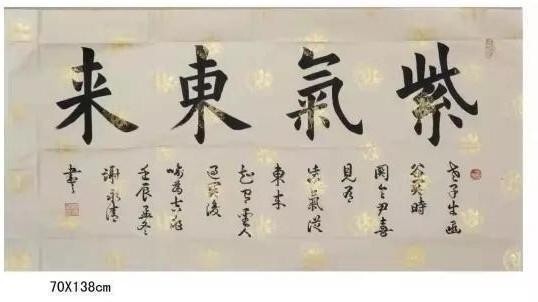 紫氣東来
老子出函
谷关時
関令尹喜
見有
紫氣從
東来
知有聖人
喻为吉祥
壬辰孟冬
谢永清
書
70X138cm